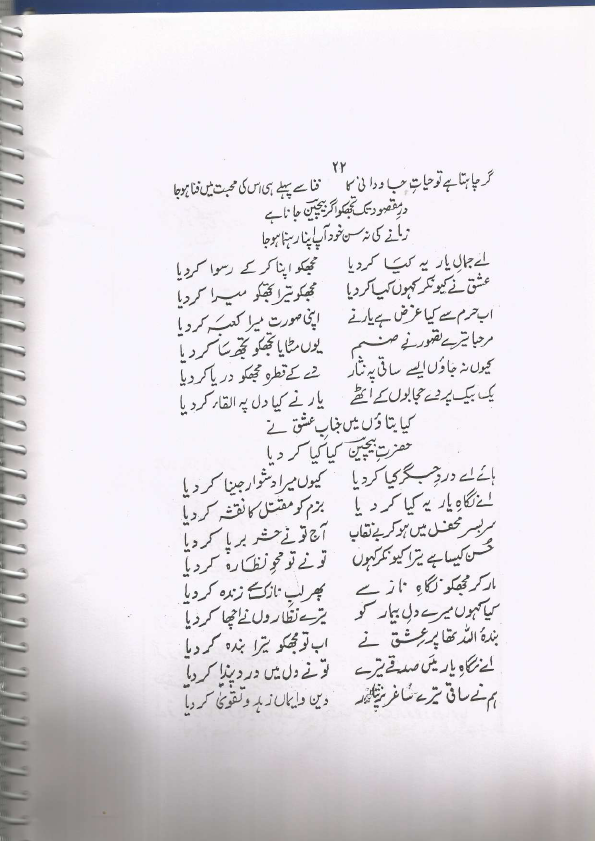 ۲۲
گر چاہتا ہے تو حیاتِ جاودانی کا فنا سے پہلے ہی اس کی محبت میں فنا ہو جا
درِ مقصود تک تجھکو اگر بیچین جانا ہے
زمانے کی نہ سن خود آپ اپنا رہنما ہو جا
اے جمالِ یار یہ کیا کر دیا مجھکو اپنا کر کے رسوا کر دیا
عشق نے کیونکر کہوں کیا کر دیا مجھکو تیرا تجھکو میرا کر دیا
اب حرم سے کیا غرض ہے یار نے اپنی صورت میرا کعبہ کر دیا
مرحبا تیرے تصور نے صنم یوں مٹایا مجھکو تجھ سا کر دیا
کیوں نہ جاؤں ایسے ساقی پہ نثار دے کے قطرہ مجھکو دریا کر دیا
یک بیک پردے حجابوں کے اٹھے یار نے کیا دل پہ القاء کر دیا
کیا بتاؤں میں جنابِ عشق نے
حضرتِ بیچین کیا کیا کر دیا
ہائے اے دردِ جگر کیا کر دیا کیوں میرا دشوار جینا کر دیا
اے نگاہِ یار یہ کیا کر دیا بزم کو مقتل کا نقشہ کر دیا
سربسر محفل میں ہو کر بے نقاب آج تو نے حشر برپا کر دیا
حُسن کیسا ہے تیرا کیونکر کہوں تو نے تو محوِ نظارہ کر دیا
مار کر مجھکو نگاہِ ناز سے پھر لبِ نازک سے زندہ کر دیا
کیا کہوں میرے دلِ بیمار کو تیرے نظاروں نے اچھا کر دیا
بندۂ اللہ تھا پر عشق نے اب تو مجھکو تیرا بندہ کر دیا
اے نگاہِ یار میں صدقے تیرے تو نے دل میں درد پیدا کر دیا
ہم نے ساقی تیرے ساغر پر دین و ایماں زہد و تقویٰ کر دیا